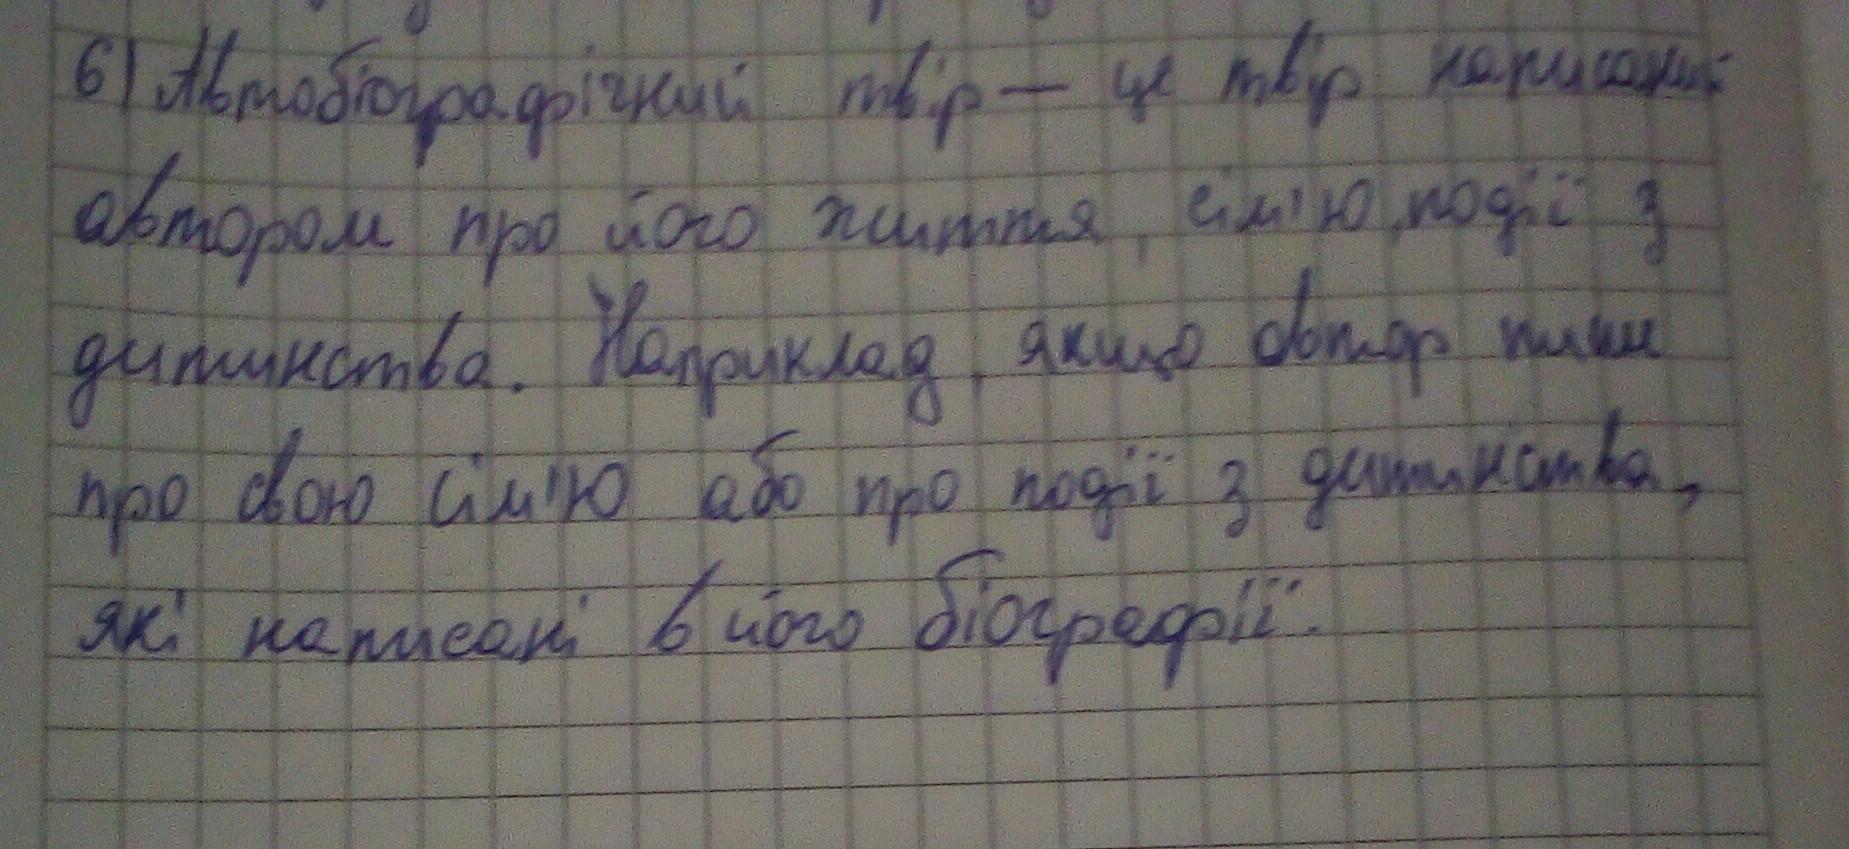 6) Автобіографічний твір – це твір написаний
автором про його життя, сім'ю, події з
дитинства. Наприклад, якщо автор пише
про свою сім'ю або про події з дитинства,
які написані в його біографії.